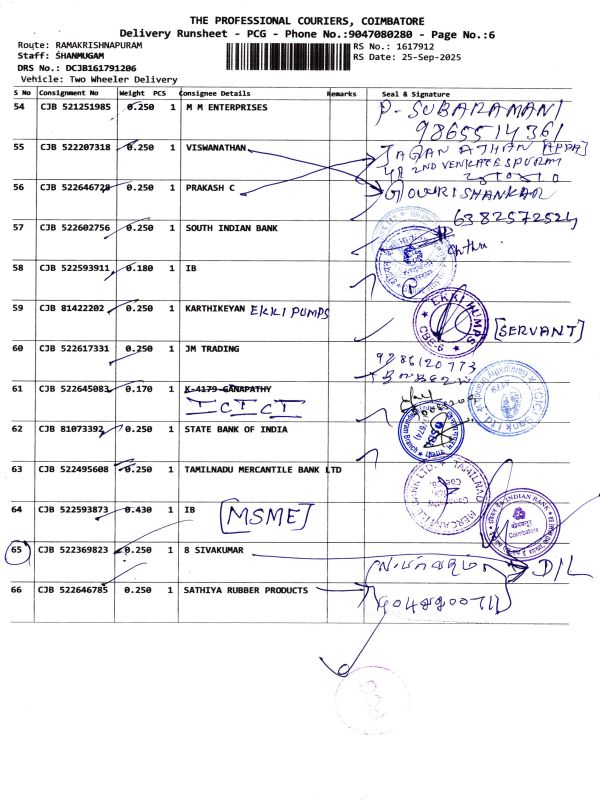 THE PROFESSIONAL COURIERS, COIMBATORE
Delivery Runsheet - PCG - Phone No.:9047080280 - Page No.:6
Route: RAMAKRISHNAPURAM RS No.: 1617912
Staff: SHANMUGAM RS Date: 25-Sep-2025
DRS No.: DCJB161791206
Vehicle: Two Wheeler Delivery
S No Consignment No Weight PCS Consignee Details Remarks Seal & Signature
54 CJB 521251985 0.250 1 M M ENTERPRISES P. SUBARAMANI
9865514361
55 CJB 522207318 0.250 1 VISWANATHAN JAGANATHAN [APPA]
48 2ND VENKATESPURAM
56 CJB 522646728 0.250 1 PRAKASH C GOWRISHANKAR
6382572524
57 CJB 522602756 0.250 1 SOUTH INDIAN BANK
58 CJB 522593911 0.180 1 IB
59 CJB 81422202 0.250 1 KARTHIKEYAN EKKI PUMPS EKKI PUMPS CBE-6 [SERVANT]
60 CJB 522617331 0.250 1 JM TRADING
9286120773
61 CJB 522645083 0.170 1 K-4179-GANAPATHY
ICICI ICICI Bank Ltd.
62 CJB 81073392 0.250 1 STATE BANK OF INDIA
63 CJB 522495608 0.250 1 TAMILNADU MERCANTILE BANK LTD TAMILNAD MERCANTILE BANK LTD.
64 CJB 522593873 0.430 1 IB [MSME] INDIAN BANK
Coimbatore
65 CJB 522369823 0.250 1 B SIVAKUMAR D/L
66 CJB 522646785 0.250 1 SATHIYA RUBBER PRODUCTS